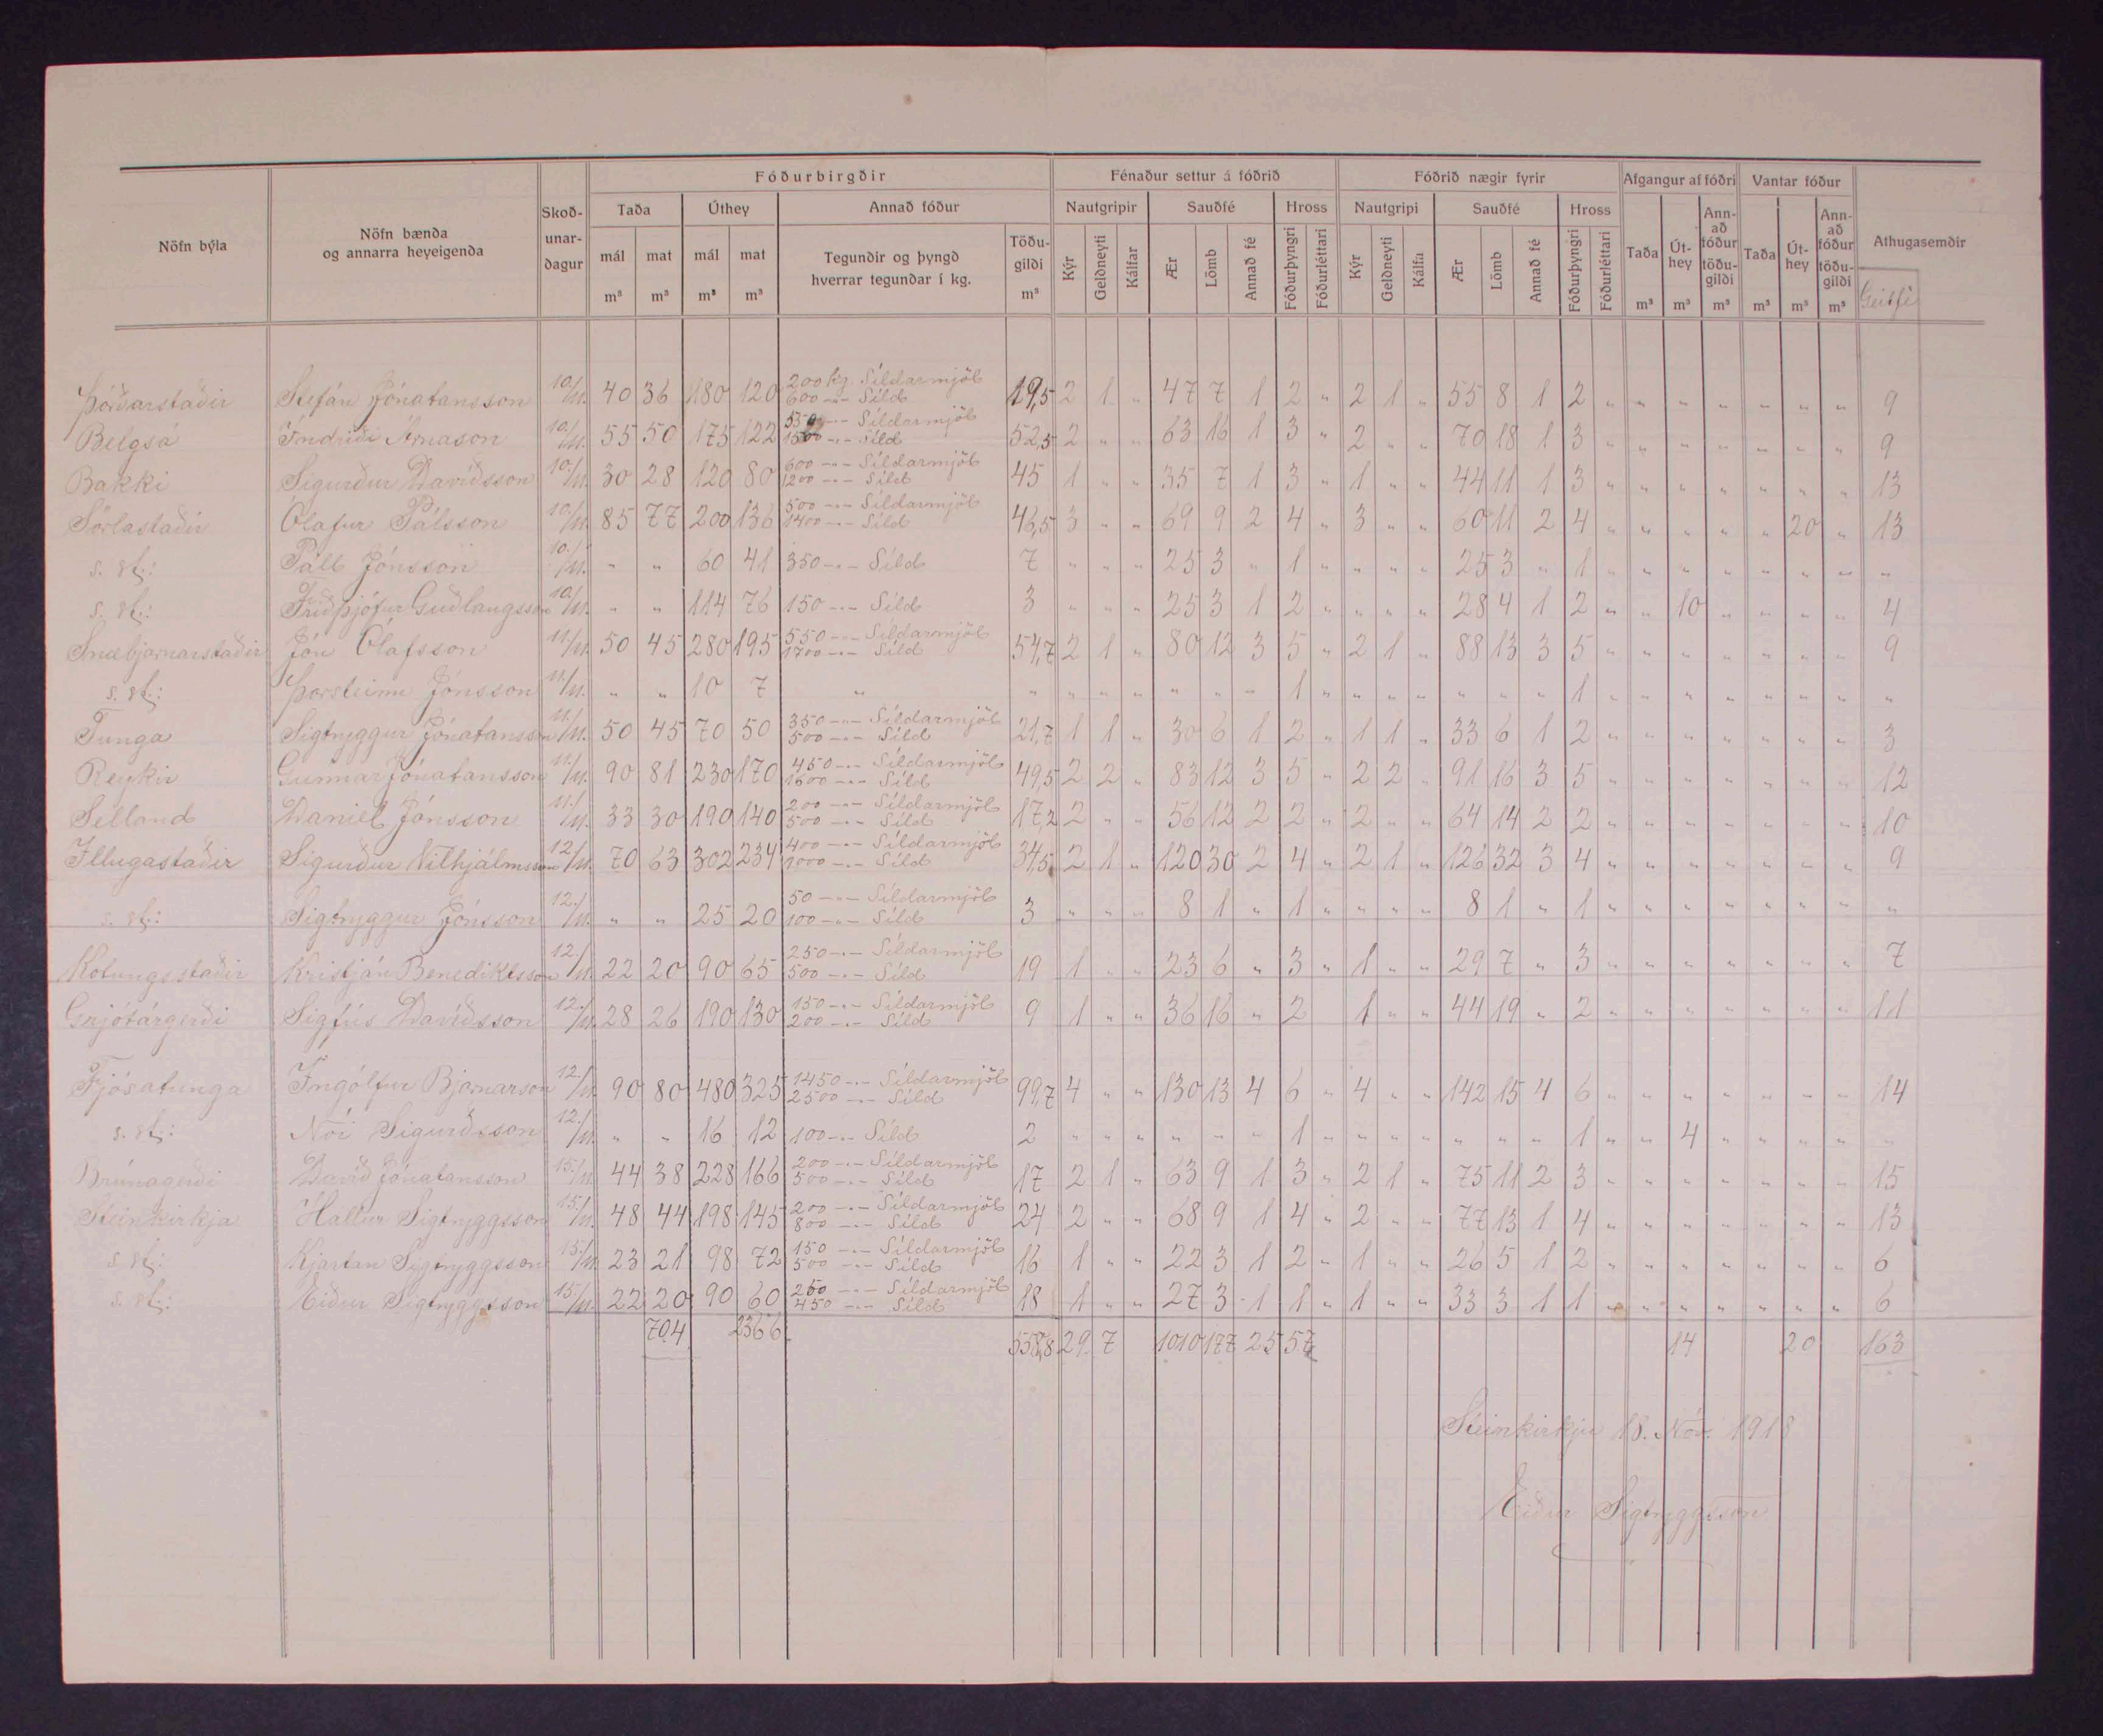 Fóðurbirgðir Fénaður settur á fóðrið Fóðrið nægir fyrir Afgangur af fóðri Vantar fóður
Nöfn býla Nöfn bænda og annarra heyeigenda Skoð-unar-dagur Taða Úthey Annað fóður Nautgripir Sauðfé Hross Nautgripi Sauðfé Hross Taða Út-hey Ann-að fóður töðu-gildi Taða Út-hey Ann-að fóður töðu-gildi Athugasemdir
mál mat mál mat Tegundir og þyngd hverrar tegundar í kg. Töðu-gildi Kýr Geldneyti Kálfar Ær Lömb Annað fé Fóðurþyngri Fóðurléttari Kýr Geldneyti Kálfa Ær Lömb Annað fé Fóðurþyngri Fóðurléttari
m³ m³ m³ m³ m³ m³ m³ m³ m³ m³ m³ Geitfé
Þórðarstaðir Stefán Jónatansson 10./11. 40 36 180 120 200 kg. Síldarmjöl 600 -"- Síld 19,5 2 1 " 47 7 1 2 " 2 1 " 55 8 1 2 " " " " " " " 9
Belgsá Indriði Árnason 10./11. 55 50 175 122 550 -"- Síldarmjöl 1500 -"- Síld 52,5 2 " " 63 16 1 3 " 2 " " 70 18 1 3 " " " " " " " 9
Bakki Sigurður Davíðsson 10./11. 30 28 120 80 600 -"- Síldarmjöl 1200 -"- Síld 45 1 " " 35 7 1 3 " 1 " " 44 11 1 3 " " " " " " " 13
Sörlastaðir Ólafur Pálsson 10./11. 85 77 200 136 500 -"- Síldarmjöl 1400 -"- Síld 46,5 3 " " 69 9 2 4 " 3 " " 60 11 2 4 " " " " " 20 " 13
s. st.: Páll Jónsson 10./11. " " 60 41 350 -"- Síld 7 " " " 25 3 " 1 " " " " 25 3 " 1 " " " " " " " "
s. st.: Friðþjófur Guðlaugsson 10./11. " " 114 76 150 -"- Síld 3 " " " 25 3 1 2 " " " " 28 4 1 2 " " 10 " " " " 4
Snæbjarnarstaðir Jón Ólafsson 11./11. 50 45 280 195 550 -"- Síldarmjöl 1700 -"- Síld 54,7 2 1 " 80 12 3 5 " 2 1 " 88 13 3 5 " " " " " " " 9
s. st.: Þorsteinn Jónsson 11./11. " " 10 7 " " " " " " " " 1 " " " " " " " 1 " " " " " " " "
Tunga Sigtryggur Jónatansson 11./11. 50 45 70 50 350 -"- Síldarmjöl 500 -"- Síld 21,7 1 1 " 30 6 1 2 " 1 1 " 33 6 1 2 " " " " " " " 3
Reykir Gunnar Jónatansson 11./11. 90 81 230 170 450 -"- Síldarmjöl 1600 -"- Síld 49,5 2 2 " 83 12 3 5 " 2 2 " 91 16 3 5 " " " " " " " 12
Selland Daníel Jónsson 11./11. 33 30 190 140 200 -"- Síldarmjöl 500 -"- Síld 17,2 2 " " 56 12 2 2 " 2 " " 64 14 2 2 " " " " " " " 10
Illugastaðir Sigurður Vilhjálmsson 12./11. 70 63 302 234 400 -"- Síldarmjöl 1000 -"- Síld 34,5 2 1 " 120 30 2 4 " 2 1 " 126 32 3 4 " " " " " " " 9
s. st.: Sigtryggur Jónsson 12./11. " " 25 20 50 -"- Síldarmjöl 100 -"- Síld 3 " " " 8 1 " 1 " " " " 8 1 " 1 " " " " " " " "
Kotungsstaðir Kristján Benediktsson 12./11. 22 20 90 65 250 -"- Síldarmjöl 500 -"- Síld 19 1 " " 23 6 " 3 " 1 " " 29 7 " 3 " " " " " " " 7
Grjótárgerði Sigfús Davíðsson 12./11. 28 26 190 130 150 -"- Síldarmjöl 200 -"- Síld 9 1 " " 36 16 " 2 1 " " 44 19 " 2 " " " " " " " 11
Fjósatunga Ingólfur Bjarnarson 12./11. 90 80 480 325 1450 -"- Síldarmjöl 2500 -"- Síld 99,7 4 " " 130 13 4 6 " 4 " " 142 15 4 6 " " " " " " " 14
s. st.: Nói Sigurðsson 12./11. " " 16 12 100 -"- Síld 2 " " " " " " 1 " " " " " " " 1 " " 4 " " " " "
Brúnagerði Davíð Jónatansson 15./11. 44 38 228 166 200 -"- Síldarmjöl 500 -"- Síld 17 2 1 " 63 9 1 3 " 2 1 " 75 11 2 3 " " " " " " " 15
Steinkirkja Hallur Sigtryggsson 15./11. 48 44 198 145 200 -"- Síldarmjöl 800 -"- Síld 24 2 " " 68 9 1 4 " 2 " " 77 13 1 4 " " " " " " " 13
s. st.: Kjartan Sigtryggsson 15./11. 23 21 98 72 150 -"- Síldarmjöl 500 -"- Síld 16 1 " " 22 3 1 2 " 1 " " 26 5 1 2 " " " " " " " 6
s. st.: Eiður Sigtryggsson 15./11. 22 20 90 60 250 -"- Síldarmjöl 450 -"- Síld 18 1 " " 27 3 1 1 " 1 " " 33 3 1 1 " " " " " " " 6
704 2366 558,8 29 7 1010 177 25 57 14 20 163
Steinkirkju 18. Nóv. 1918
Eiður Sigtryggsson